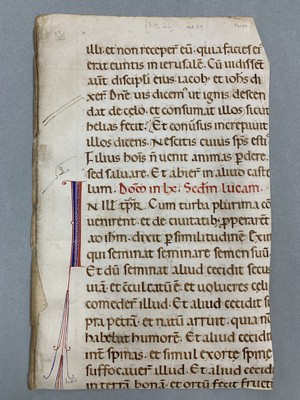 illi. et non receper̄ eū. quia facies ei
erat euntis in ierusalē. Cū uidiss̄t
aūt discipli eius. iacob; et ioh̄s di
xer̄. Dn̄e uis dicem' ut ignis descen
dat de celo. et consumat illos sicut
helias fecit. Et conūsus increpauit
illos dicens. Nescitis cuius sp̄s estis
Filius hoīs n̄ uenit animas p̱dere.
sed saluare. Et abier̄ in aliud castel
lum. Dōm̄ in lx. Sec̄dm lucam.
IN ill' tp̄r̄. Cum turba plurima cō
uenirent. et de ciuitatib; p̱perarēt
ad ih̄m. dixit p̱ similitudinē. Exiit
qui seminat seminare semen suū.
Et dū seminat aliud cecidit secus
uiā. et cōculcatū ē. et uolucres celi
comeder̄ illud. Et aliud cecidit su
pra petrā. et natū arruit. quia nō
habebat humorē. Et aliud cecidit
int̄ spinas. et simul exorte spine
suffocauer̄ illud. Et aliud cecidit
in terrā bonā. et ortū fecit fructū